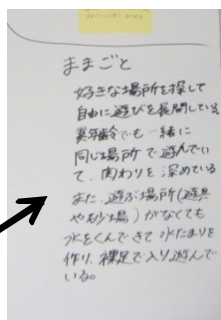 ままごと
好きな場所を探して
自由に遊びを展開している
異年齢でも一緒に
同じ場所で遊んでい
て、関わりを深めている
また、遊ぶ場所(遊具
や砂場)がなくても
水をくんできて水たまりを
作り、裸足で入り遊んで
いる。